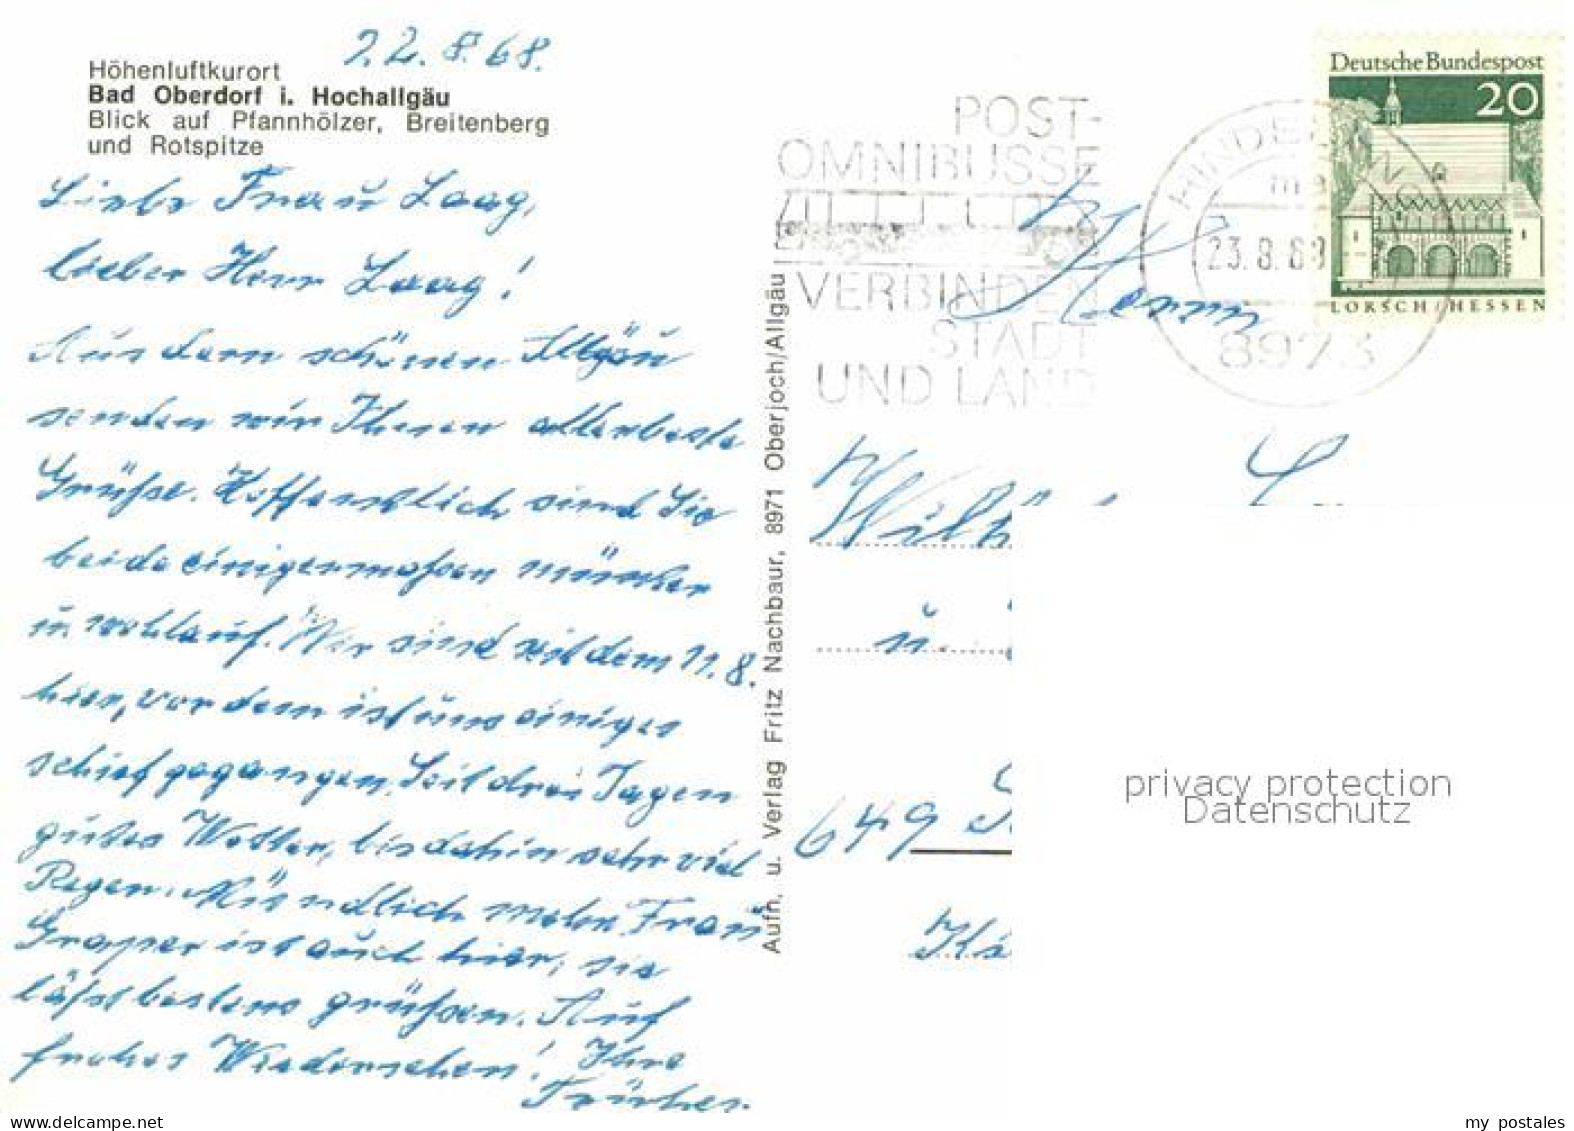 22.8.68.
Höhenluftkurort
Bad Oberdorf i. Hochallgäu
Blick auf Pfannhölzer, Breitenberg
und Rotspitze
Liebe Frau Laag,
lieber Herr Laag!
Aus dem schönen Allgäu
senden wir Ihnen allerbeste
Grüße. Hoffentlich sind Sie
beide einigermaßen munter
u. wohlauf. Wir sind seit dem 11.8.
hier, vordem ist uns einiges
schief gegangen. Seit drei Tagen
gutes Wetter, bis dahin sehr viel
Regen. Mündlich mehr. Frau
ist auch hier, sie
läßt bestens grüßen. Auf
frohes Wiedersehen! Ihre
Aufn. u. Verlag Fritz Nachbaur, 8971 Oberjoch/Allgäu
POST-
OMNIBUSSE
VERBINDEN
STADT
UND LAND
HINDELANG
23.8.68
8973
Deutsche Bundespost
20
LORSCH/HESSEN
Herrn
u.
649
privacy protection
Datenschutz
my postales